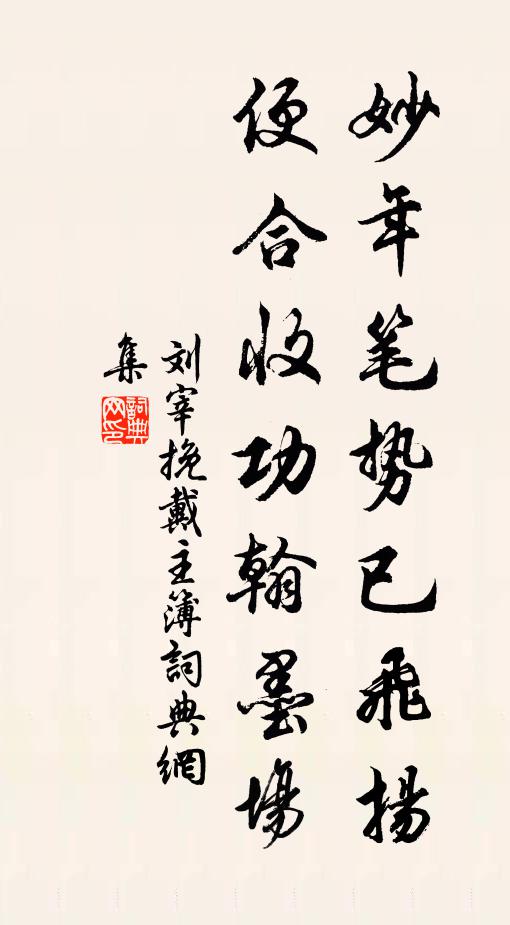 妙年笔势已飞扬
便合收功翰墨場
刘宰挽戴主簿詞典網
集
詞典
网印